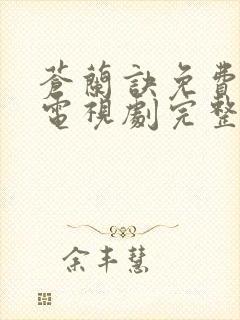 蒼蘭訣免費
電視劇完整
余丰慧